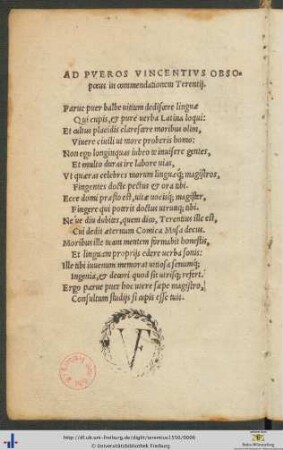 AD PVEROS VINCENTIVS OBSO-
pœus in commendationem Terentij.
Parue puer balbæ uitium dediscere linguæ
Qui cupis, & pure uerba Latina loqui:
Et cultus placidis clarescere moribus olim,
Viuere ciuili ut more proberis homo:
Non ego longinquas iubeo te inuisere gentes,
Et multo duras ire labore uias,
Vt quæras celebres morum linguæq; magistros,
Fingentes docte pectus & ora tibi.
Ecce domi præsto est, uitæ uocisq; magister,
Fingere qui poterit doctus utrunq; tibi.
Ne ue diu dubites, quem dico, Terentius ille est,
Cui dedit æternum Comica Musa decus.
Moribus ille tuam mentem formabit honestis,
Et linguam proprijs edere uerba sonis:
Ille tibi iuuenum memorat uitiosa senumq;
Ingenia, & deceat quod sit utrisq; refert.
Ergo parue puer hoc utere sæpe magistro,
Consultum studijs si cupis esse tuis.
http://dl.ub.uni-freiburg.de/diglit/terentius1550/0006
© Universitätsbibliothek Freiburg
Baden-Württemberg